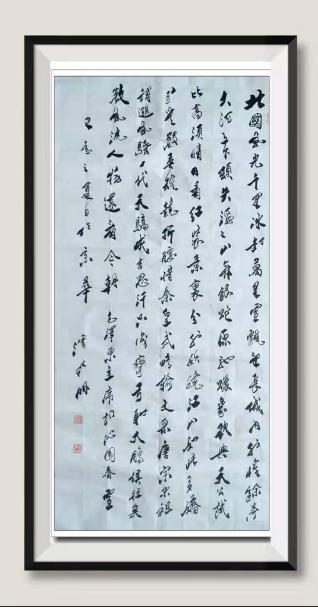 北國風光千里冰封萬里雪飄望長城內外惟餘莽莽
大河上下頓失滔滔山舞銀蛇原馳蠟象欲與天公試
比高須晴日看紅裝素裹分外妖嬈江山如此多嬌
引無數英雄競折腰惜秦皇漢武略輸文采唐宗宋祖
稍遜風騷一代天驕成吉思汗只識彎弓射大鵰俱往矣
數風流人物還看今朝 毛澤東主席詞沁園春雪
之夏月於京華